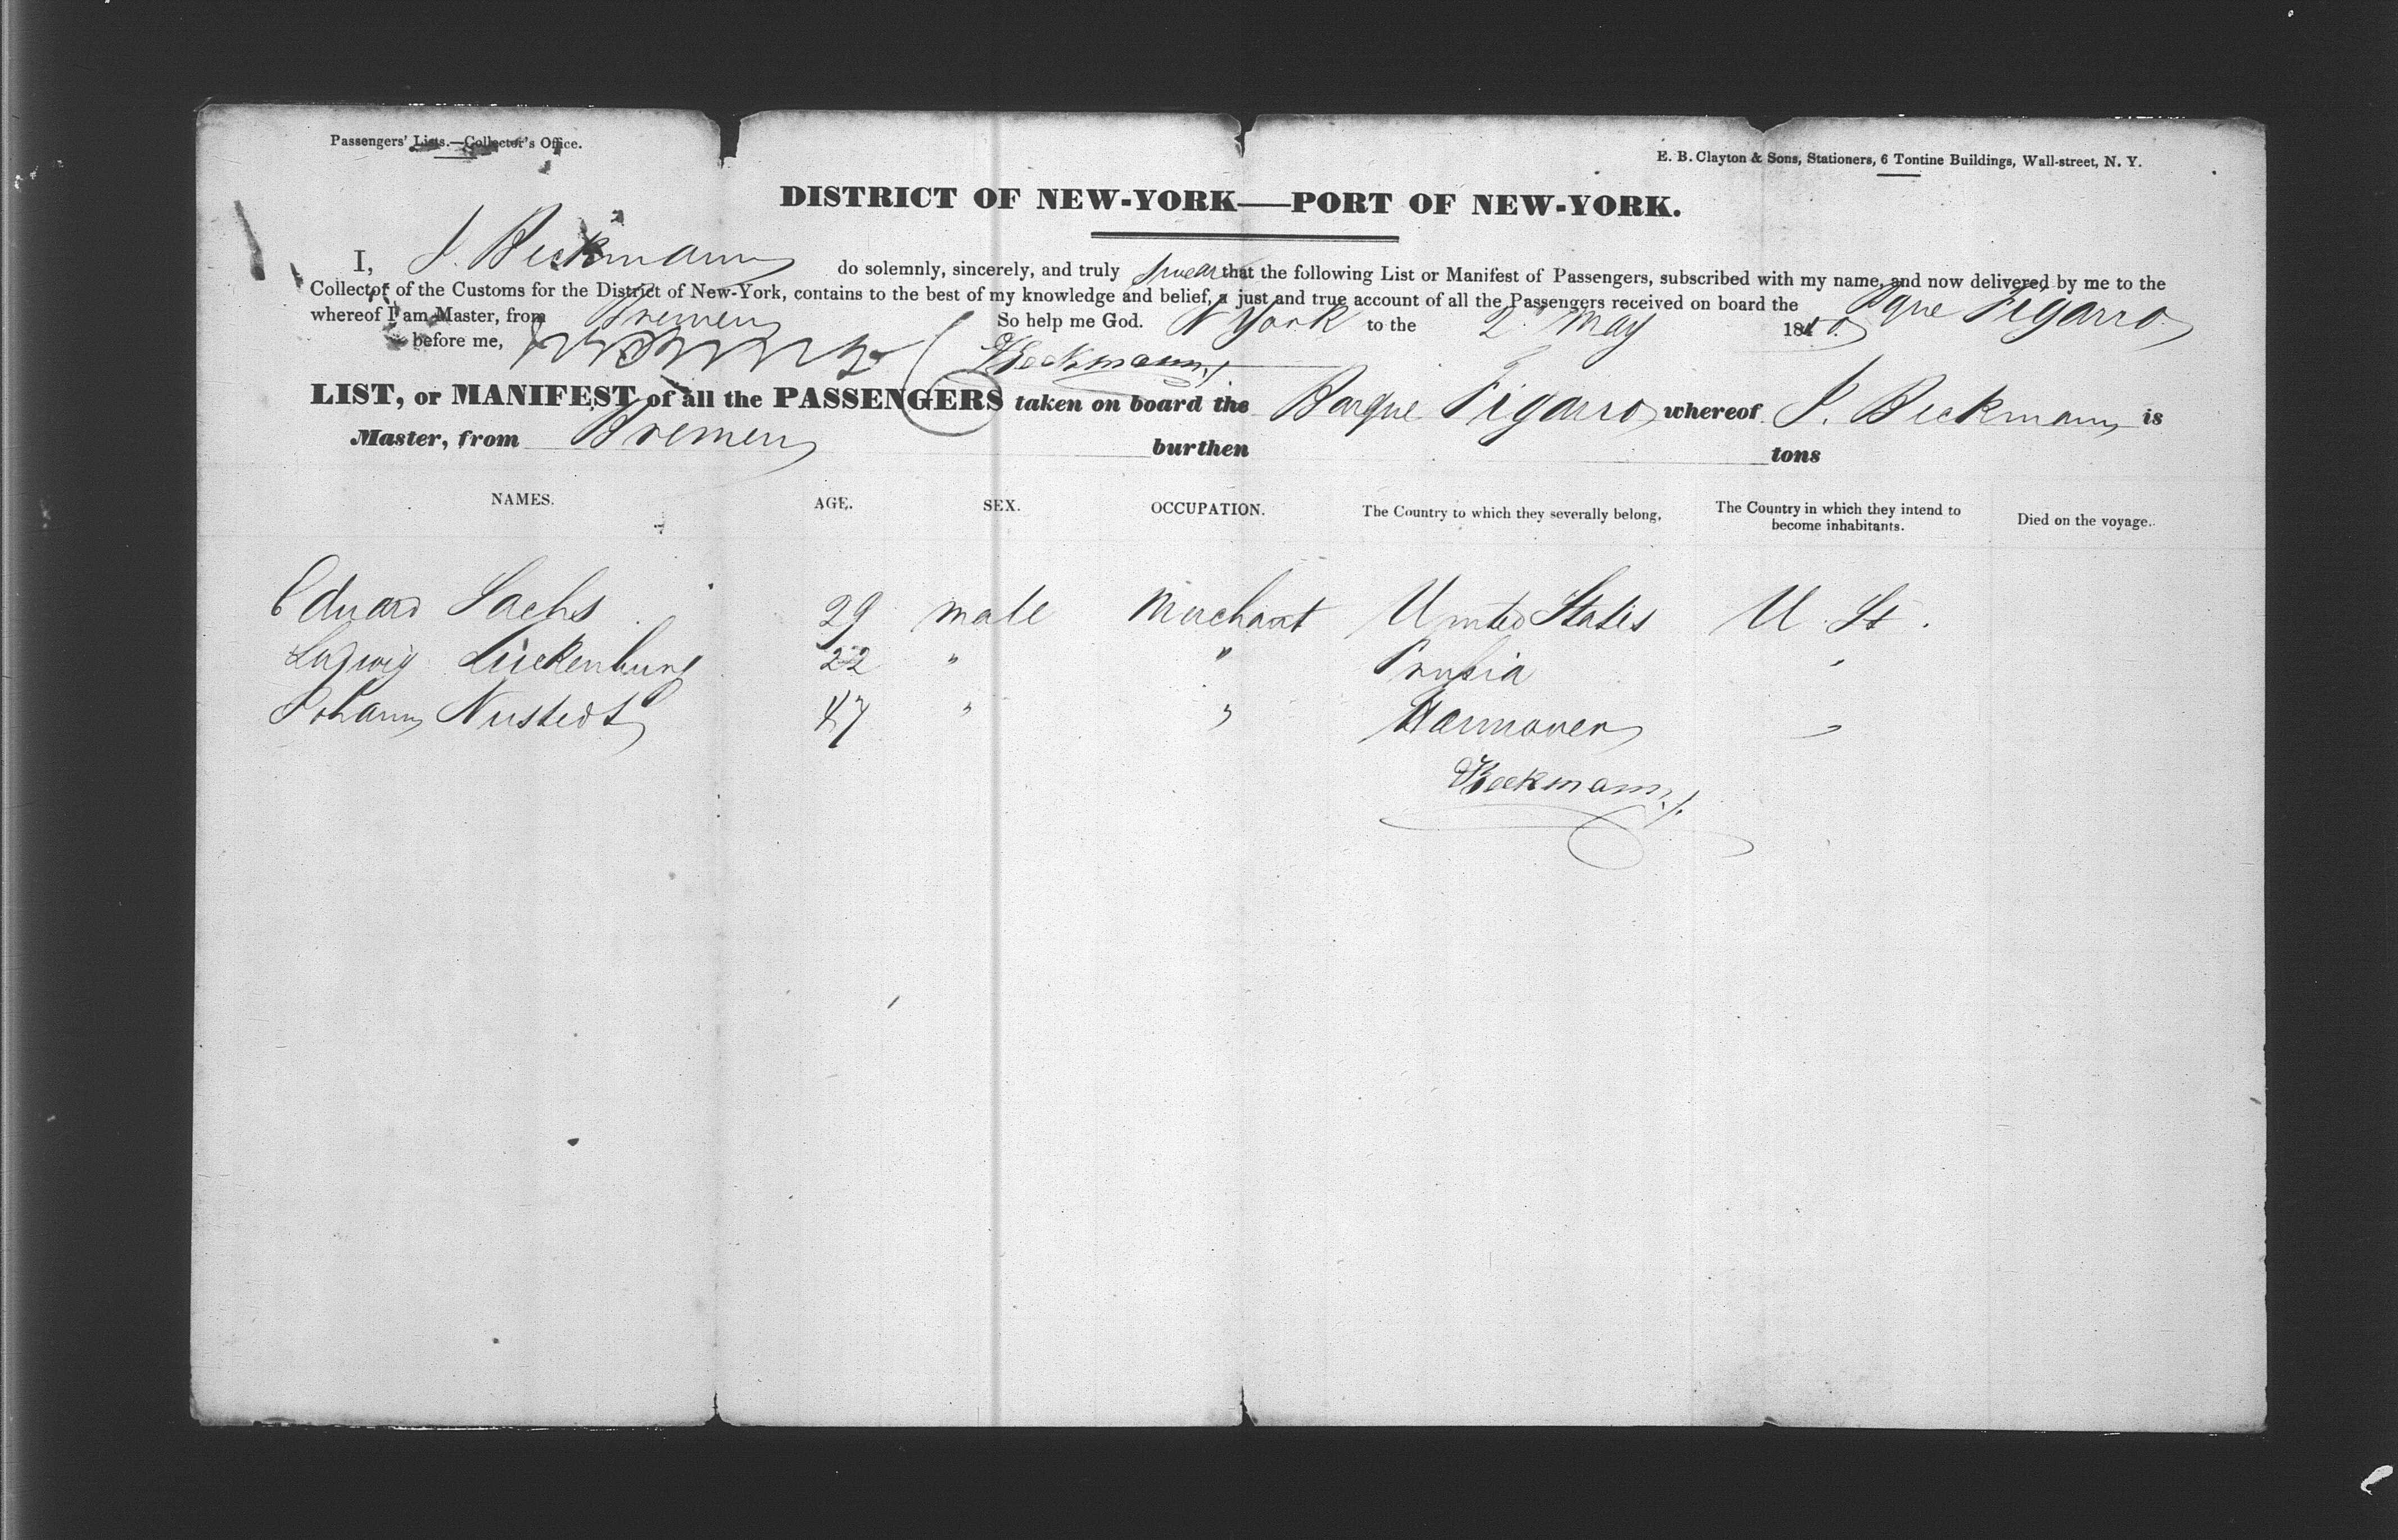 Passengers' Lists.—Collector's Office.
E. B. Clayton & Sons, Stationers, 6 Tontine Buildings, Wall-street, N. Y.
DISTRICT OF NEW-YORK—PORT OF NEW-YORK.
I, J. Beckmann do solemnly, sincerely, and truly swear that the following List or Manifest of Passengers, subscribed with my name, and now delivered by me to the
Collector of the Customs for the District of New-York, contains to the best of my knowledge and belief, a just and true account of all the Passengers received on board the Bque Figarro
whereof I am Master, from Bremen to the N York So help me God.
2 May 1850
before me, Beckmann
LIST, or MANIFEST of all the PASSENGERS taken on board the Barque Figarro whereof J. Beckmann is
Master, from Bremen burthen tons
NAMES. AGE. SEX. OCCUPATION. The Country to which they severally belong. The Country in which they intend to become inhabitants. Died on the voyage.
Eduard Sachs 29 male Merchant United States U. St.
Ludwig Lückenburg 22 " " Prusia "
Johann Nustedt 47 " " Hannover "
Beckmann